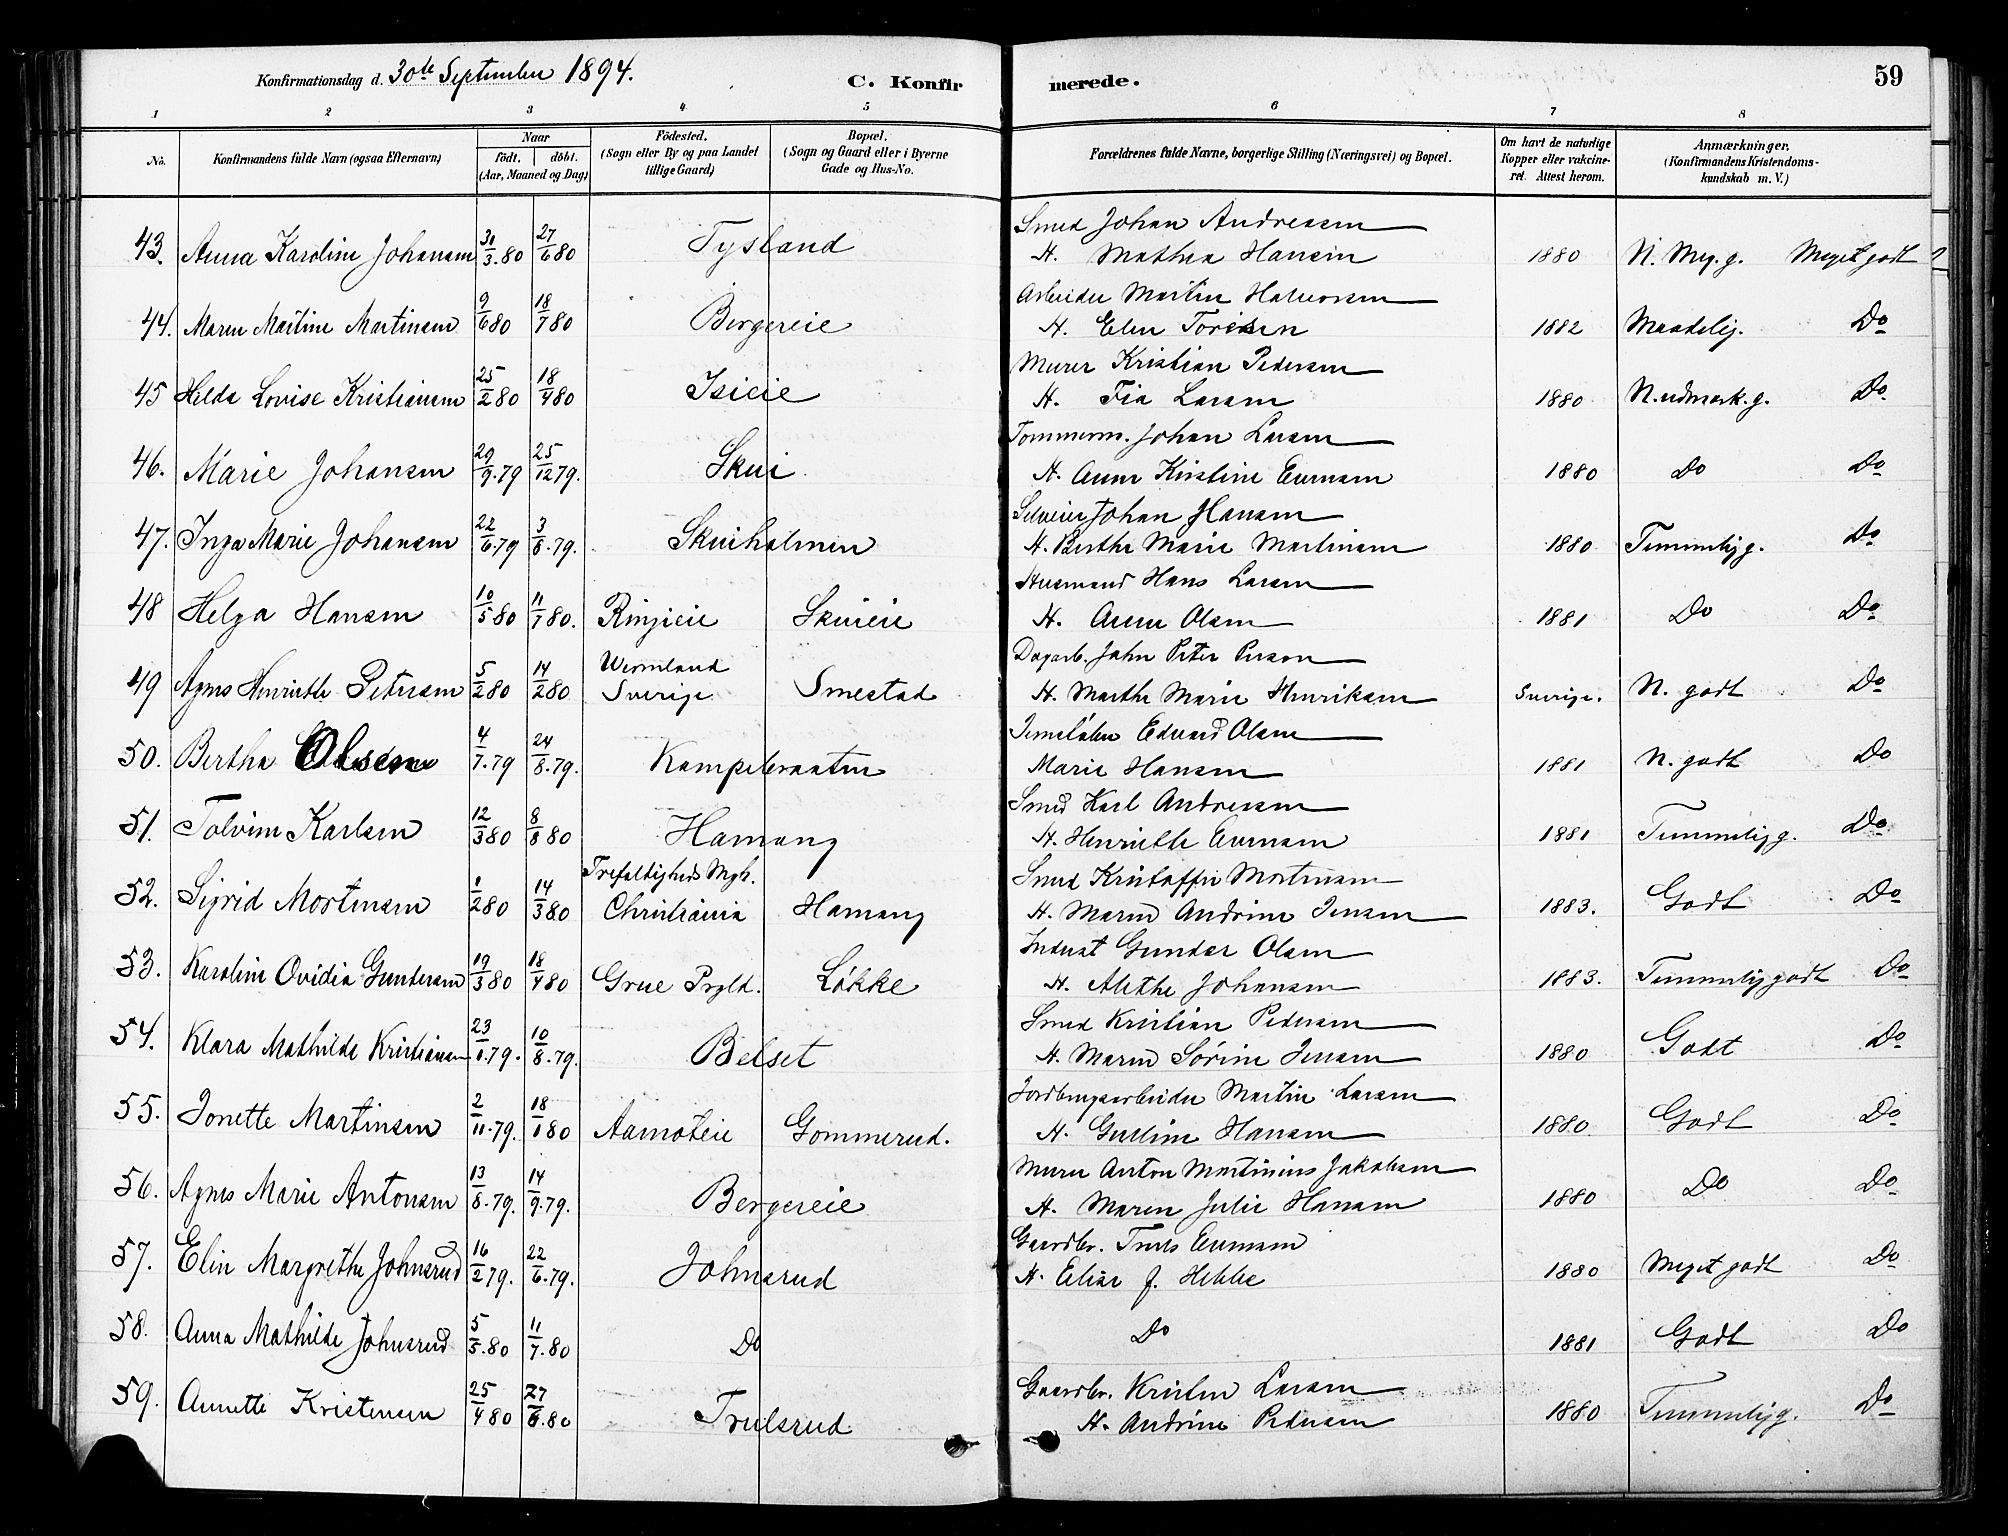 Konfirmationsdag d. 30de September 1894. C. Konfir merede. 59
1 2 3 4 5 6 7 8
No. Konfirmandens fulde Navn (ogsaa Efternavn) Naar født. døbt. (Aar, Maaned og Dag) Fødested. (Sogn eller By og paa Landet tillige Gaard) Bopæl. (Sogn og Gaard eller i Byerne Gade og Hus-No. Forældrenes fulde Navne, borgerlige Stilling (Næringsvei) og Bopæl. Om havt de naturlige Kopper eller vakcineret. Attest herom. Anmærkninger. (Konfirmandens Kristendomskundskab m. V.)
43. Anna Karoline Johansen 31/3.80 27/6 80 Tysland Smed Johan Andreasen
H. Mathea Hansen 1880 N. Meg. g. Meget godt
44. Maren Martine Martinsen 9/6 80 18/7 80 Bergereie Arbeider Martin Halvorsen
H. Elen 1882 Maadelig. Do
45 Helda Lovise Kristiansen 25/2 80 18/4 80 Isieie Murer Kristian Pedersen
H. Fia Larsen 1880 N. udmerk. g. Do
46. Marie Johansen 29/9.79 25/12 79. Skui Tommerm. Johan Larsen
H. Anne Kirstine Evensen 1880 Do Do
47. Inga Marie Johansen 22/6.79 3/8.79. Skuiholmen Selveier Johan Hansen
H. Berthe Marie Martinsen 1880 Temmelig g. Do
48 Helga Hansen 10/5 80 11/7 80. Ringieie Skuieie Husmand Hans Larsen
H. Anne Olsen 1881 Do Do
49 Agnes Henriette Petersen 5/2 80 14/2 80 Wermland Sverige Smestad Dagarb. John Peter Person
H. Marthe Marie Henriksen Sverige. N. godt Do
50. Bertha Olsen 4/7.79 24/8.79. Kampebraaten Edvard Olsen
Marie Hansen 1881 N. godt Do
51. Tolvine Karlsen 12/3 80 8/8 80 Hamang Smed Karl Andreasen
H. Henriette Evensen 1881 Temmelig g. Do
52. Sigrid Mortensen 1/2 80 14/3 80 Trefoldigheds Mgh. Christiania Hamang Smed Kristoffer Mortensen
H. Maren Andrine Jensen 1883. Godt Do
53. Karoline Ovidia Gundersen 19/3 80 18/4 80 Grue Prgld. Løkke Inderst Gunder Olsen
H. Alethe Johansen 1883. Temmelig godt Do
54. Klara Mathilde Kristiansen 23/1.79. 10/8.79. Belset Smed Kristian Pedersen
H. Maren Sørine Jensen 1880 Godt Do
55. Jonette Martinsen 2/11.79. 18/1 80 Aamoteie Gommerud. Jordbrugsarbeider Martin Larsen
H. Gulline Hansen 1880. Godt Do
56. Agnes Marie Antonsen 13/8.79. 14/9.79. Bergereie Murer Anton Martinius Jakobsen
H. Maren Julie Hansen 1880 Do Do
57. Elin Margrethe Johnsrud 16/2 79. 22/6.79. Johnsrud Gaardbr. Truls Evensen
H. Elise f. Hebbe 1880 Meget godt Do
58. Anna Mathilde Johnsrud 5/5.80 11/7.80 Do Do 1881 Godt Do
59. Annette Kristensen 25/4 80 27/6.80 Trulsrud Gaardbr. Kristen Larsen
H. Andrine Pedersen 1880 Temmelig g. Do